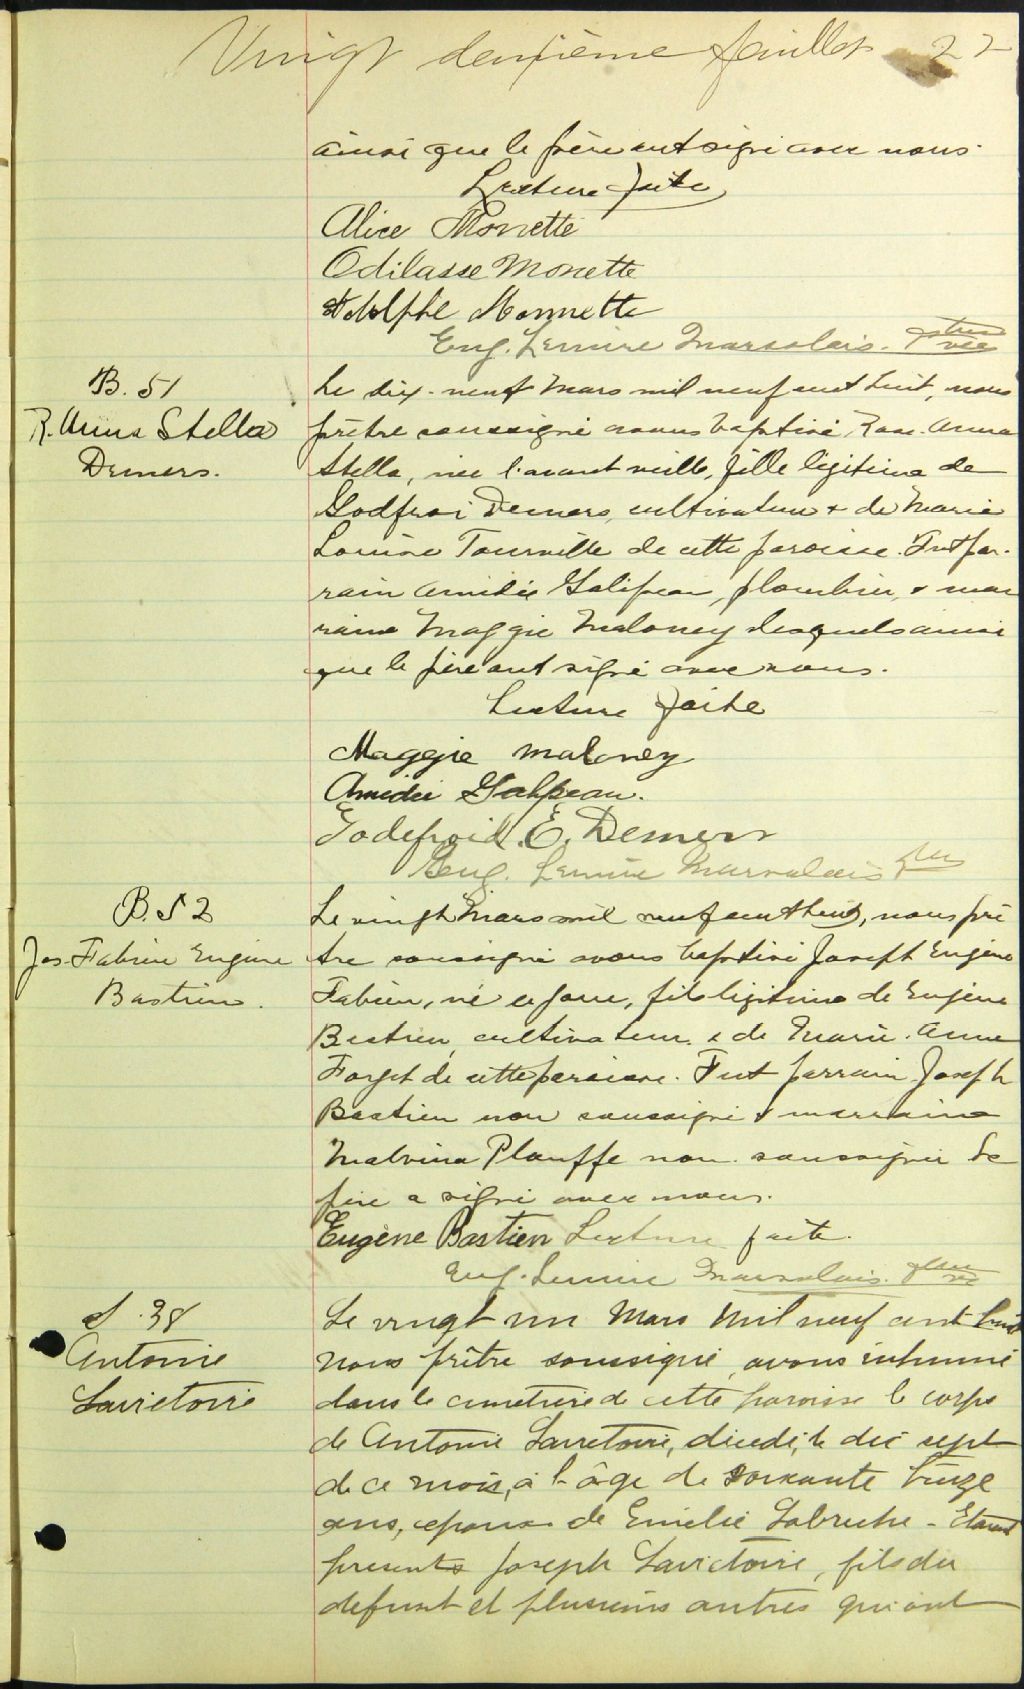 Vingt deuxième feuillet 22
ainsi que le père ont signé avec nous.
Lecture faite
Alice Monette
Odilasse Monette
Adolphe Monnette
Eug. Lemire Marsolais. ptre
B. 51
R. Anna Stella
Demers.
Le dix-neuf Mars mil neuf cent huit, nous
prêtre soussigné avons baptisé Rose Anna
Stella, née l'avant veille, fille légitime de
Godfroi Demers, cultivateur & de Marie
Louise Tourville de cette paroisse. Fut par-
rain Amédée Galipeau, plombier, & mar
raine Maggie Maloney lesquels ainsi
que le père ont signé avec nous.
Lecture faite
Maggie Maloney
Amédée Galipeau.
Godefroid. E. Demers
Eug. Lemire Marsolais ptre
B. 52
Jos. Fabien Eugène
Bastien.
Le vingt Mars mil neuf cent huit, nous prê
tre soussigné avons baptisé Joseph Eugène
Fabien, né ce jour, fils légitime de Eugène
Bastien, cultivateur & de Marie-Anne
Forget de cette paroisse. Fut parrain Joseph
Bastien non soussigné & marraine
Malvina Plouffe non soussignée Le
père a signé avec nous.
Eugène Bastien Lecture faite.
Eug. Lemire Marsolais. ptre
S. 38
Antoine
Lavictoire
Le vingt un Mars mil neuf cent huit
nous prêtre soussigné avons inhumé
dans le cimetière de cette paroisse le corps
de Antoine Lavictoire, décédé, le dix sept
de ce mois, à l'âge de soixante
ans, époux de Emélie Labrèche - Etaient
présents Joseph Lavictoire, fils du
defunt et plusieurs autres qui ont